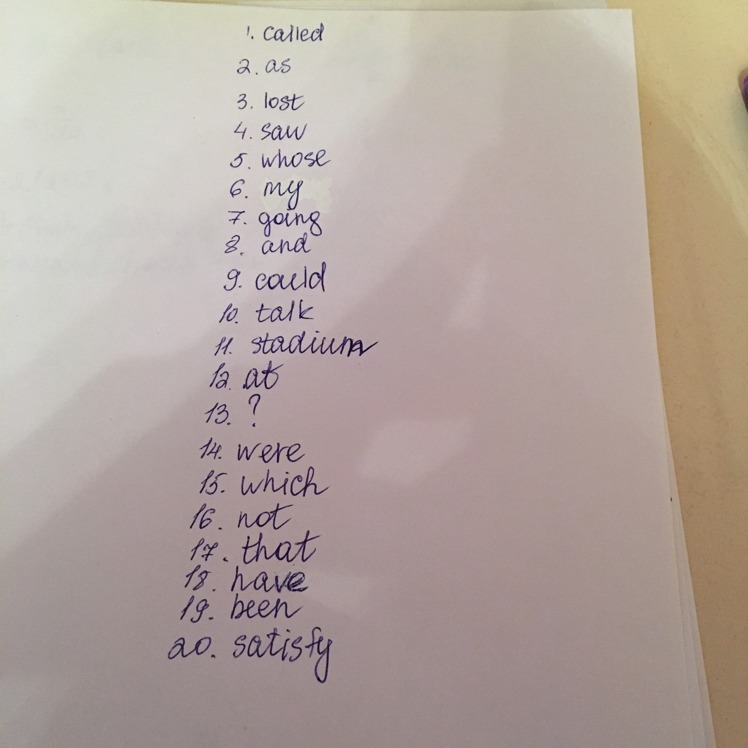 1. called
2. as
3. lost
4. saw
5. whose
6. my
7. going
8. and
9. could
10. talk
11. stadium
12. at
13. ?
14. were
15. which
16. not
17. that
18. have
19. been
20. satisfy